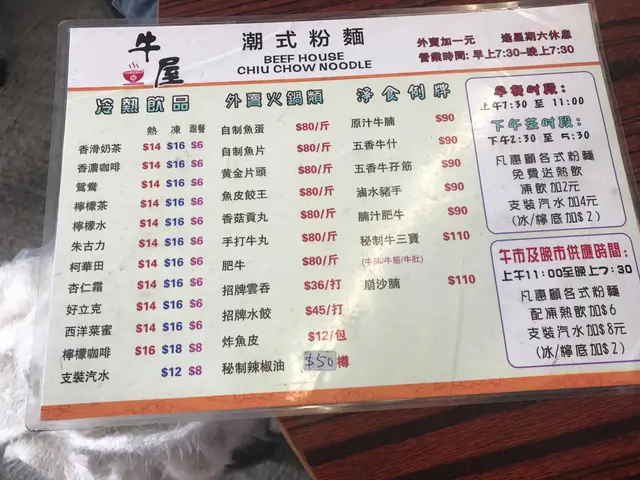 牛屋
潮式粉麵
BEEF HOUSE
CHIU CHOW NOODLE
外賣加一元 逢星期六休息
營業時間: 早上7:30-晚上7:30
冷熱飲品
熱 凍 跟餐
香滑奶茶 $14 $16 $6
香濃咖啡 $14 $16 $6
鴛鴦 $14 $16 $6
檸檬茶 $14 $16 $6
檸檬水 $14 $16 $6
朱古力 $14 $16 $6
柯華田 $14 $16 $6
杏仁霜 $14 $16 $6
好立克 $14 $16 $6
西洋菜蜜 $14 $16 $6
檸檬咖啡 $16 $18 $8
支裝汽水 $12 $8
外賣火鍋類
自制魚蛋 $80/斤
自制魚片 $80/斤
黃金片頭 $80/斤
魚皮餃王 $80/斤
香菇貢丸 $80/斤
手打牛丸 $80/斤
肥牛 $80/斤
招牌雲吞 $36/打
招牌水餃 $45/打
炸魚皮 $12/包
秘制辣椒油 $50樽
淨食例牌
原汁牛腩 $90
五香牛什 $90
五香牛孖筋 $90
滷水豬手 $90
腩汁肥牛 $90
秘制牛三寶 $110
(牛腩/牛筋/牛肚)
崩沙腩 $110
早餐时段:
上午7:30 至 11:00
下午茶时段:
下午2:30 至 5:30
凡惠顧各式粉麵
免費送熱飲
凍飲加2元
支裝汽水加4元
(冰/檸底加$2)
午市及晚市供應時間:
上午11:00至晚上7:30
凡惠顧各式粉麵
配凍熱飲加$6
支裝汽水加$8元
(冰/檸底加$2)